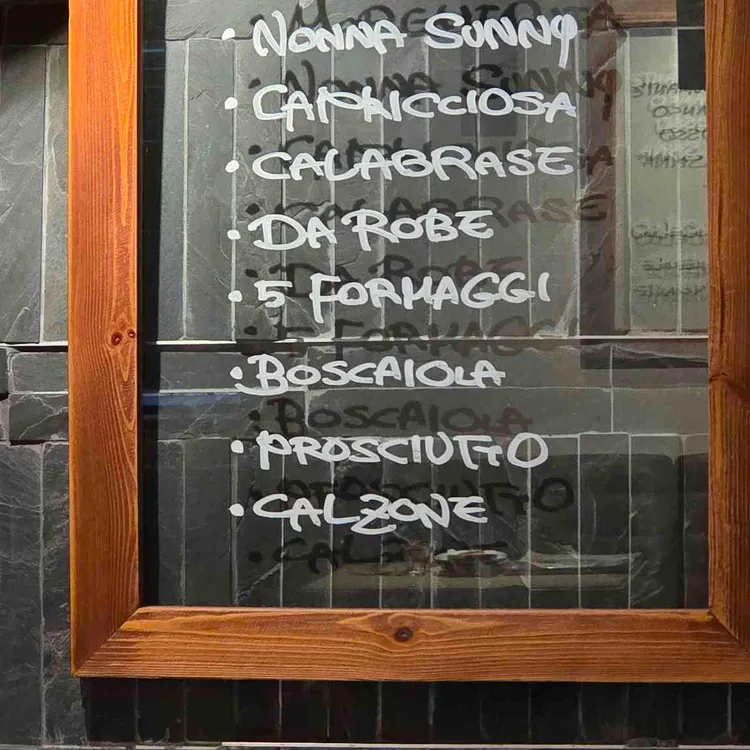 • NONNA SUNNY
• CAPRICCIOSA
• CALABRASE
• DA ROBE
• 5 FORMAGGI
• BOSCAIOLA
• PROSCIUTTO
• CALZONE